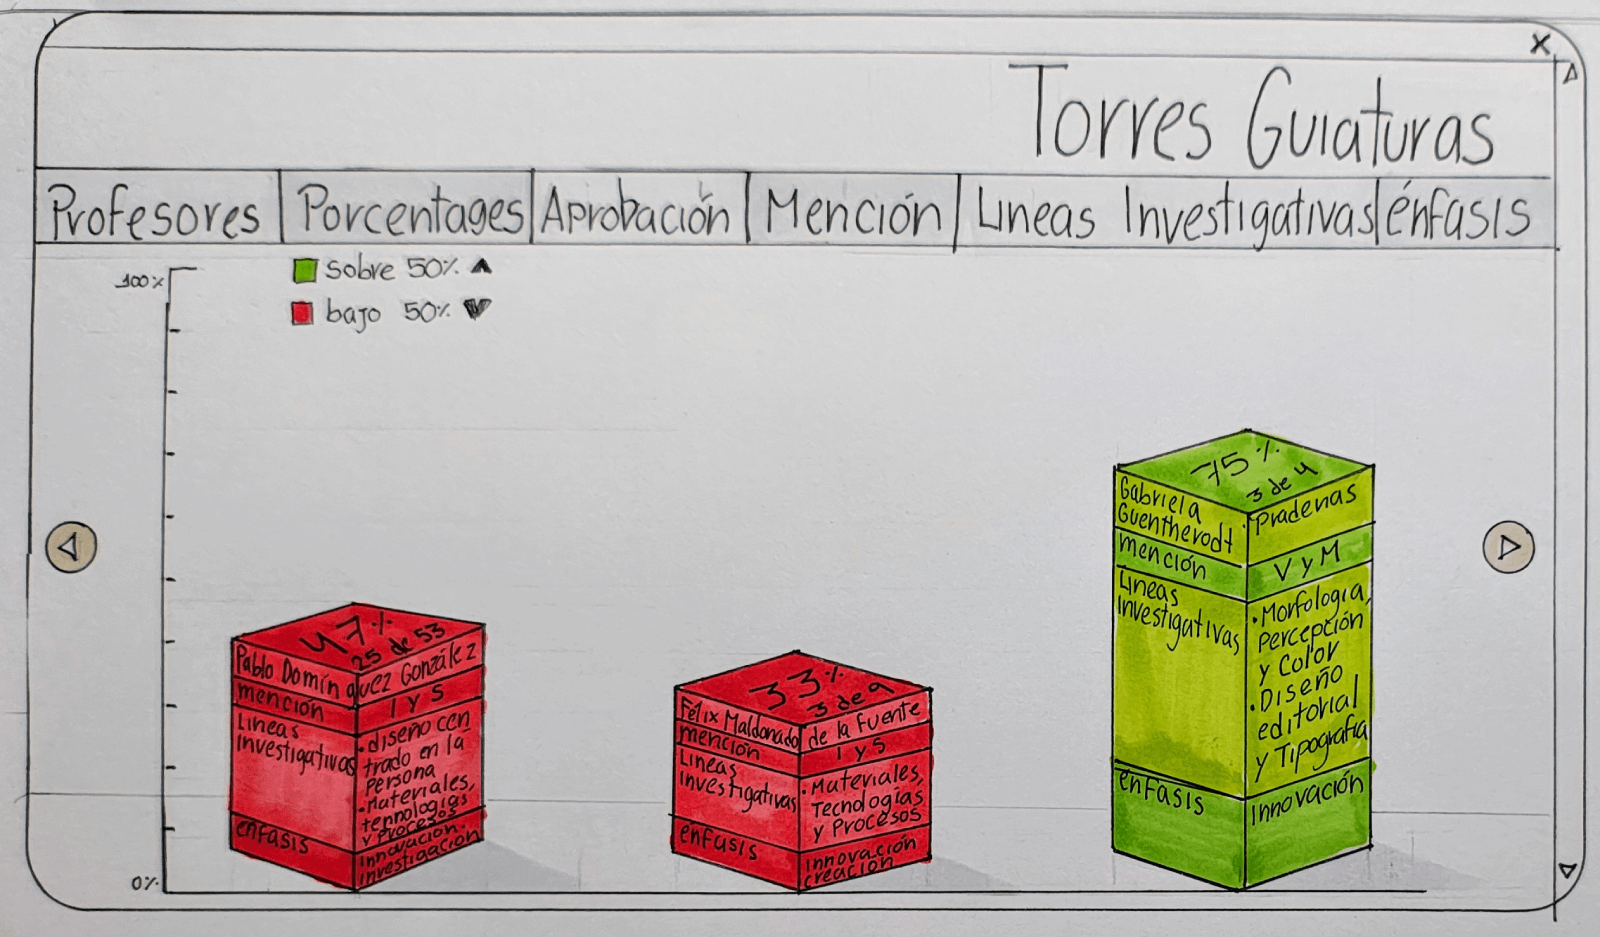 X
Torres Guiaturas
Profesores Porcentages Aprobación Mención Lineas Investigativas énfasis
100%
sobre 50%
bajo 50%
0%
47%
25 de 53
Pablo Domínguez González
mención I y S
Lineas
Investigativas
• diseño cen
trado en la
persona
• Materiales,
tecnologías
y Procesos
énfasis
innovación
investigación
33%
3 de 9
Félix Maldonado de la Fuente
mención I y S
Lineas
Investigativas
• Materiales,
Tecnologías
y Procesos
énfasis
innovación
creación
75%
3 de 4
Gabriela
Guentherodt
Pradenas
mención V y M
Lineas
Investigativas
• Morfología,
Percepción
y Color
• Diseño
editorial
y Tipografía
énfasis
innovación